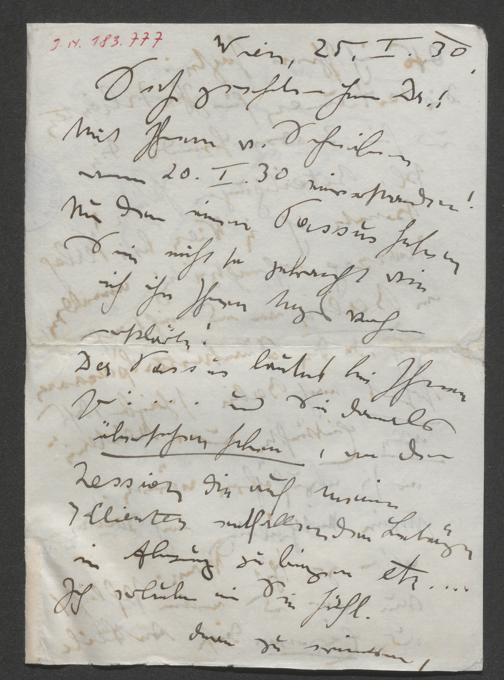 J.N. 183.777
Wien, 25. I. 30.
Sehr geehrter Herr Dr.!
Mit Ihrem w. Schreiben
vom 20. I. 30 einverstanden!
Nur den einen Passus haben
Sie nicht so gebracht wie
ich ihn Ihrem
erklärte!
Der Passus lautet bei Ihnen
" . . . . und Sie damals
übersehen haben, von der
Zession die auf meine
7 Clienten entfallenden Beträge
in Abzug zu bringen etc ....
Ich erlaube mir Sie höfl.
daran zu erinnern,